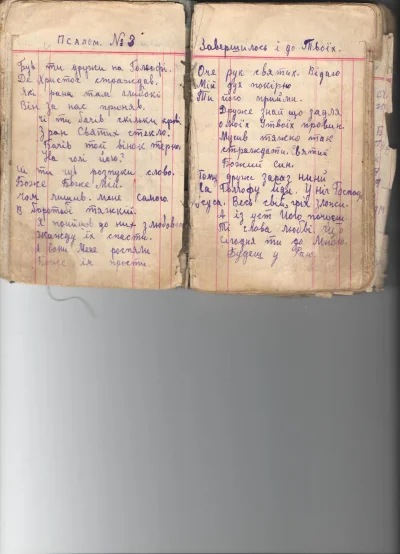 Псалом №3
Був ти друже на Голгофі.
Де Христос страждав.
Які рани там глибокі
Він за нас приняв.
Чи ти бачив скільки крові
З ран Святих стекло.
Колів той вінок терно
На чолі Його?
Чи ти чув розпуки слово.
Боже Боже Мій.
чом лишив. мене самого
В боротбі тяжкій
Я прийшов до них з любовю
Жажду їх спасти.
А вони Мене розпяли
Боже їм прости.
Завершилось і до Твоїх.
Оче рук святих. Віддаю
Мій дух покірно
Ти його прийми.
Друже знай що задля
моїх Ітвоїх провин.
Мусив тяжко так
страждати. Святий
Божий син.
Тому друже зараз нині
На Голгофу йди. У ніг Господа
Ісуса. Весь свій гріх зложи.
А із уст Його почуєш
Ті слова любві
Сьогодня ти до Мною.
Будеш у Раю.